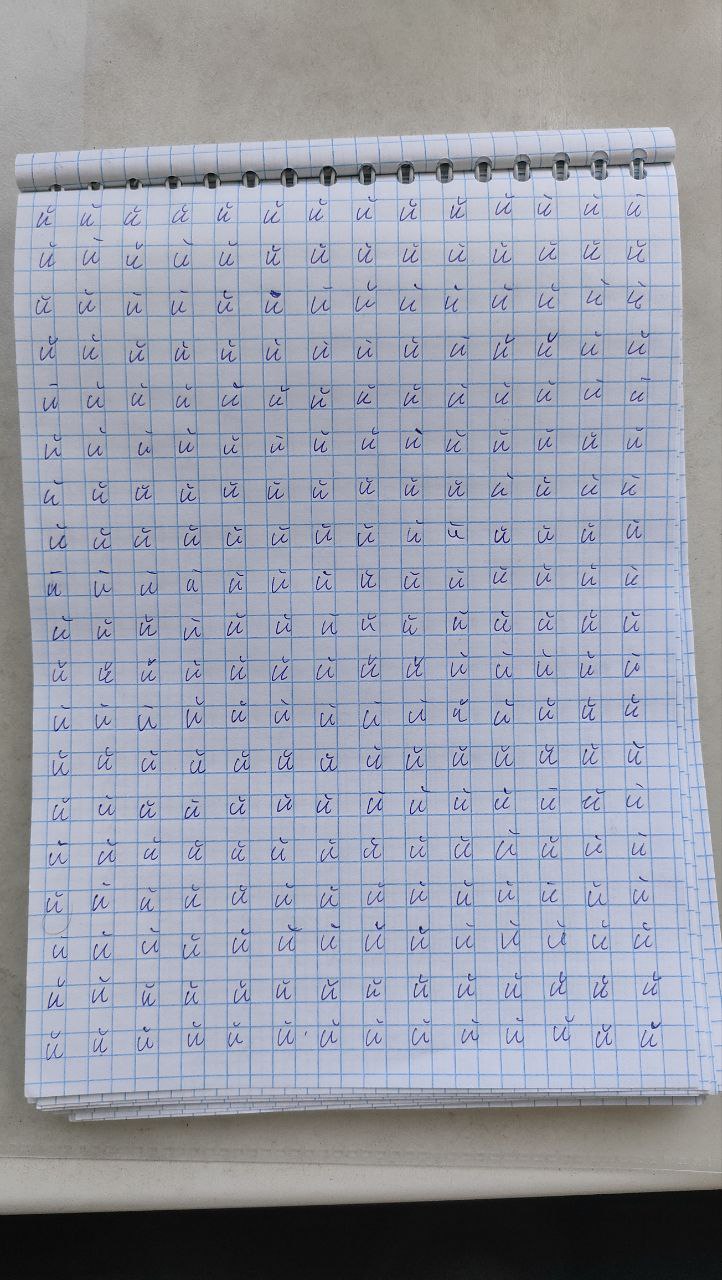 й й й й й й й й й й й й й й
й й й й й й й й й й й й й й
й й й й й й й й й й й й й й
й й й й й й й й й й й й й й
й й й й й й й й й й й й й й
й й й й й й й й й й й й й й
й й й й й й й й й й й й й й
й й й й й й й й й й й й й й
й й й й й й й й й й й й й й
й й й й й й й й й й й й й й
й й й й й й й й й й й й й й
й й й й й й й й й й й й й й
й й й й й й й й й й й й й й
й й й й й й й й й й й й й й
й й й й й й й й й й й й й й
й й й й й й й й й й й й й й
й й й й й й й й й й й й й й
й й й й й й й й й й й й й й
й й й й й й й й й й й й й й